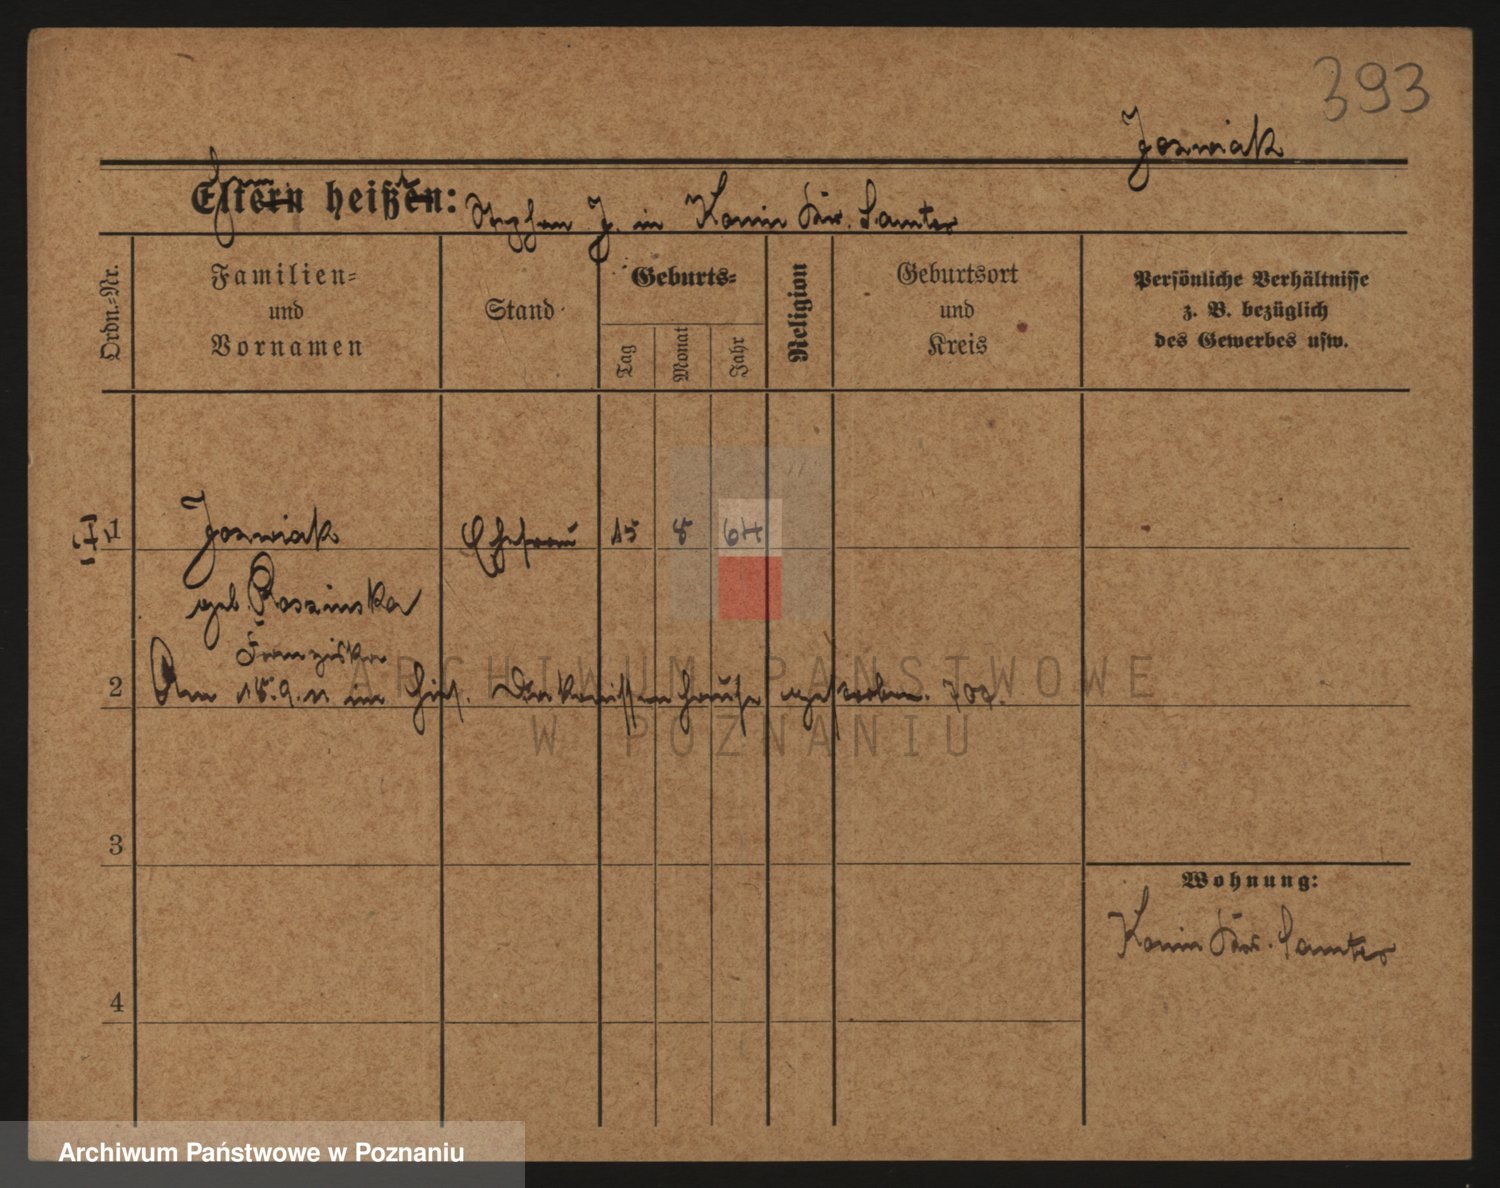 393
Jozwiak
Eltern heißen: Stephan J. in Konin Krs. Samter
Ordn.-Nr.
Familien-
und
Vornamen
Stand
Geburts-
Tag
Monat
Jahr
Religion
Geburtsort
und
Kreis
Persönliche Verhältnisse
z. B. bezüglich
des Gewerbes usw.
1 Jozwiak Ehefrau 15 8 64
geb. Roszinska
Franziska
2 Am 15.9.11 im hies. Diakonissenhause gestorben.
ARCHIWUM PAŃSTWOWE
W POZNANIU
3
Wohnung:
Konin Krs. Samter
4
Archiwum Państwowe w Poznaniu